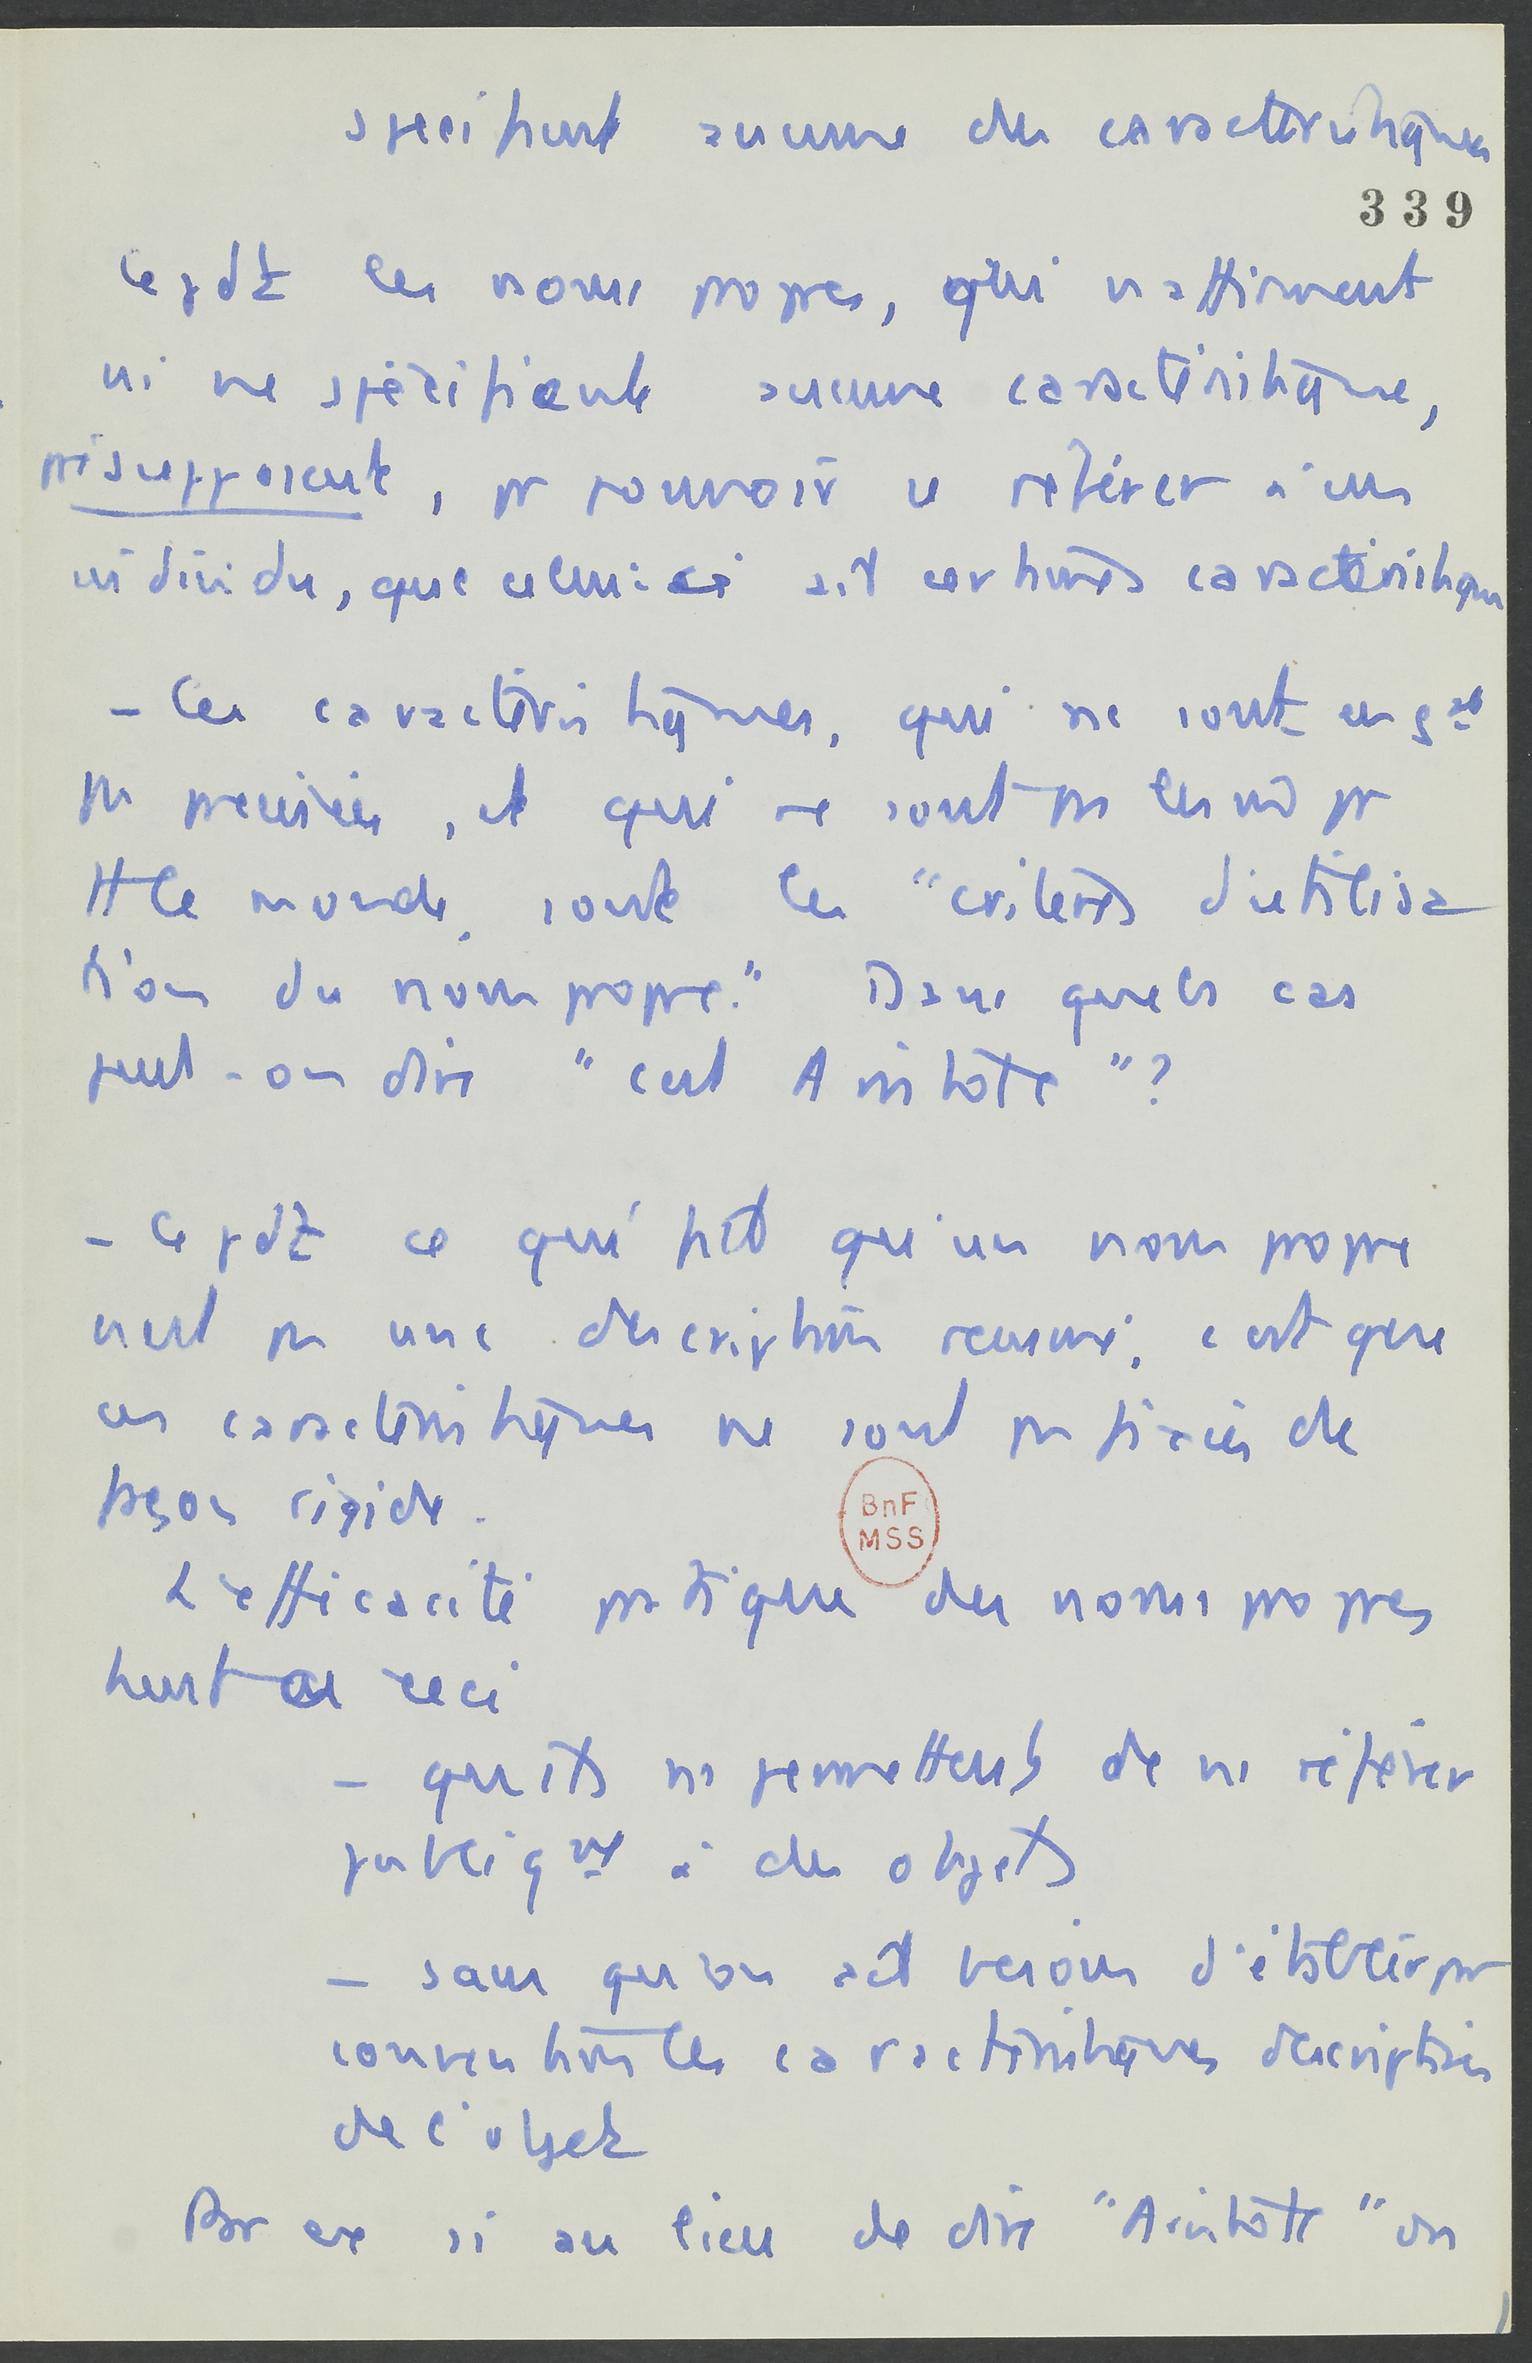 specifient aucune des caractéristiques
339
Cepdt les noms propres, qui n'affirment
ni ne spécifient aucune caractéristique,
présupposent, pr pouvoir se référer à un
individu, que celui-ci ait certaines caractéristiques
- Ces caractéristiques, qui ne sont en gal
pas précisées, et qui ne sont pas les m̂ pr
tt le monde, sont les "critères d'utilisa
tion du nom propre." Dans quels cas
peut-on dire "c'est Aristote"?
- Cepdt ce qui fait qu'un nom propre
n'est pas une description resumé, c'est que
ces caractéristiques ne sont pas fixées de
façon rigide.
L'efficacité pratique des noms propres
tient à ceci
- qu'ils ns permettent de ns référer
publiqut à des objets
- sans qu'on ait besoin d'établir par
convention les caractéristiques descriptives
de l'objet
BnF
MSS
Par ex si au lieu de dire "Aristote" on